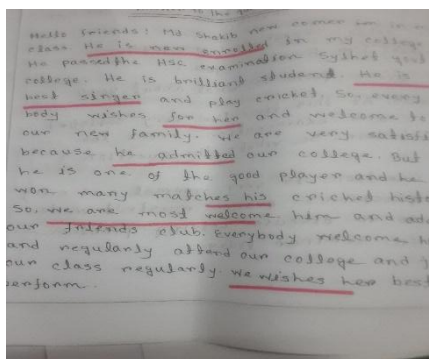 Hello friends! Md Shakib new comer in m
class. He is new enrolled in my college
He passed the HSC examination Sylhet govt
college. He is brilliant student. He is
best singer and play cricket. So, every
body wishes for her and welcome to
our new family. We are very satisfi
because he admitted our college. But
he is one of the good player and he
won many matches his cricket histo
So, we are most welcome him and ad
our friends club. Everybody welcome h
and regularly attend our college and
our class regularly. We wishes her best
perform.